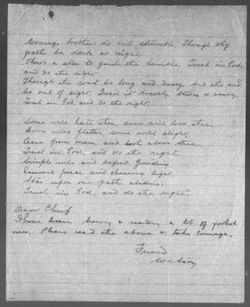 Courage brother do not stumble, Though thy
path be dark as night,
There's a star to guide the humble, Trust in God,
and do the right
Though the road be long and dreary, And the end
be out of sight, Tread it bravely, strong or weary,
Trust in God, and do the right.
Some will hate thee, some will love thee,
Some will flatter, some will slight,
Cease from man, and look above thee
Trust in God, and do the right,
Simple rule and safest guiding
Inward peace and shining light,
Star upon our path abiding
Trust in God, and do the right.
Dear Chief.
I have been reading a lot of
Please read the above & take courage,
Friend
Watson